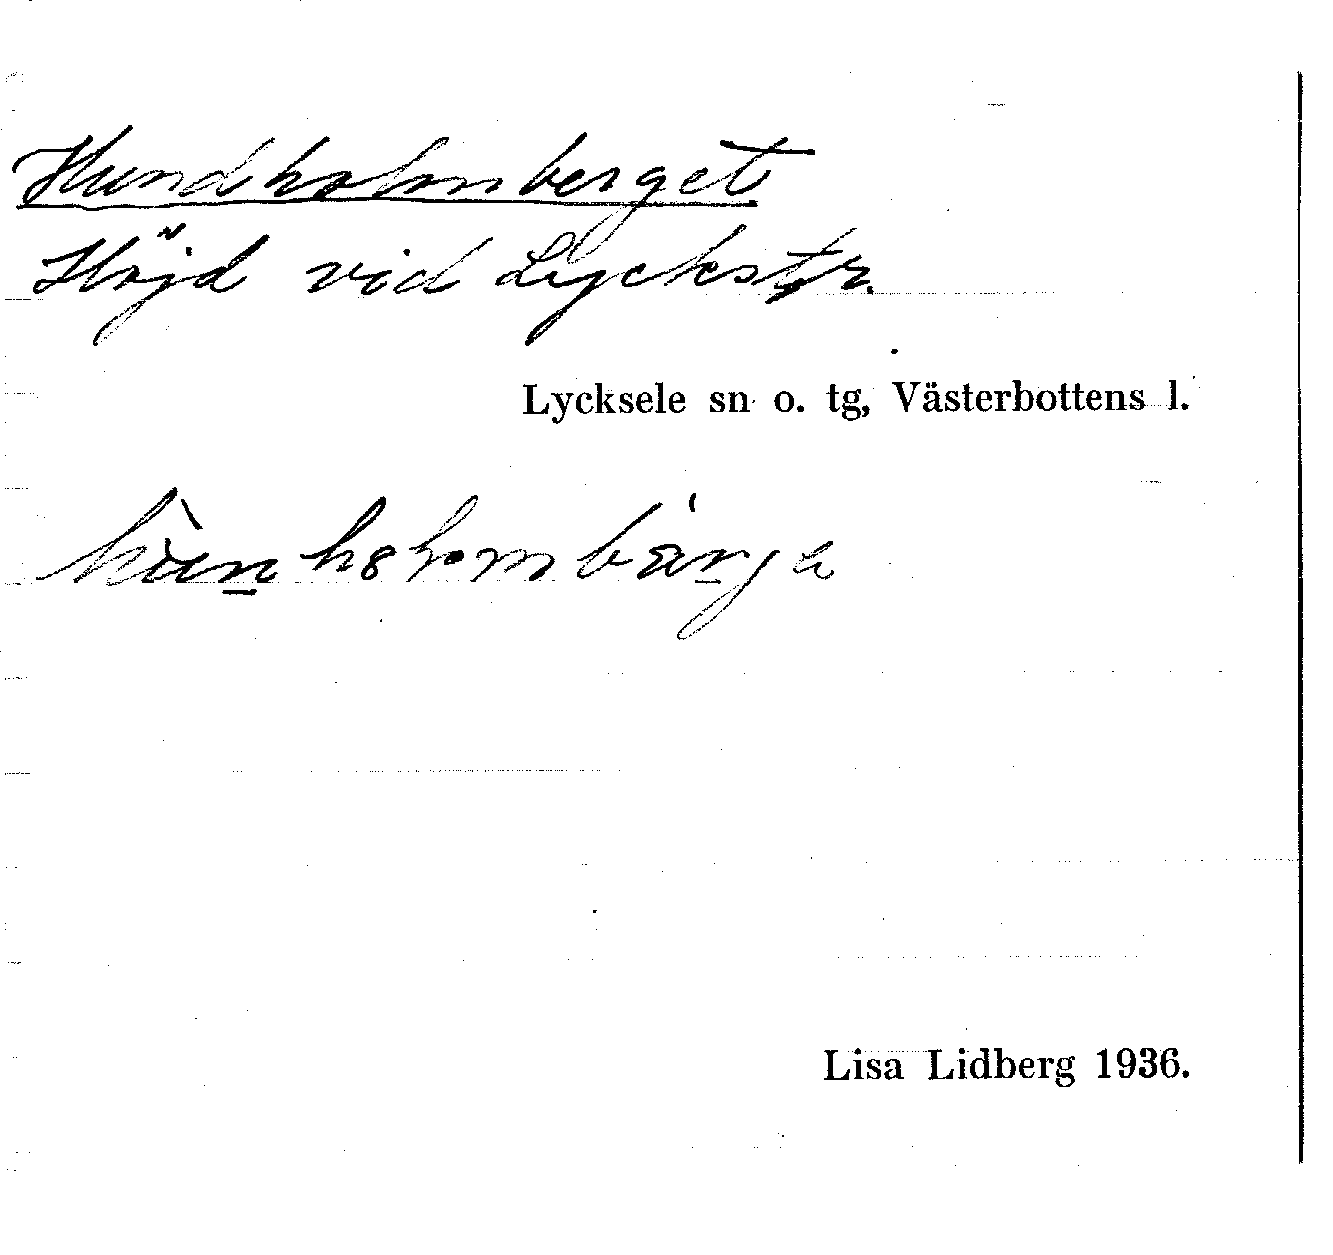 Hundholmberget
Höjd vid Lyckstr.
Lycksele sn o. tg, Västerbottens l.
Lisa Lidberg 1936.